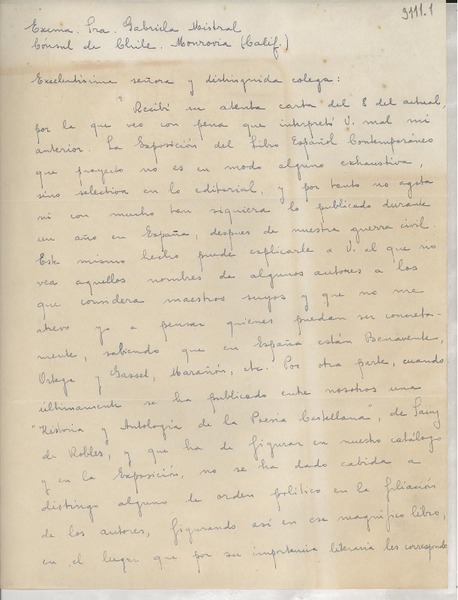 9111.1
Exema. Sra. Gabriela Mistral
Cónsul de Chile. Monrovia (Calif.)
Excelentísima señora y distinguida colega:
Recibí su atenta carta del 8 del actual,
por la que veo con pena que interpretó V. mal mi
anterior. La Exposición del Libro Español Contemporáneo
que proyecto no es en modo alguno exhaustiva,
sino selectiva en lo editorial, y por tanto no agota
ni con mucho tan siquiera lo publicado durante
un año en España, despues de nuestra guerra civil.
Este mismo hecho puede explicarle a V. el que no
vea aquellos nombres de algunos autores a los
que considera maestros suyos y que no me
atrevo yo a pensar quienes puedan ser concreta-
mente, sabiendo que en España están Benavente,
Ortega y Gasset, Marañón, etc. Por otra parte, cuando
últimamente se ha publicado entre nosotros una
"Historia y Antología de la Poesía Castellana", de Sainz
de Robles, y que ha de figurar en nuestro catálogo
y en la Exposición, no se ha dado cabida a
distingo alguno de orden político en la filiación
de los autores, figurando así en ese magnífico libro,
en el lugar que por su importancia literaria les corresponde